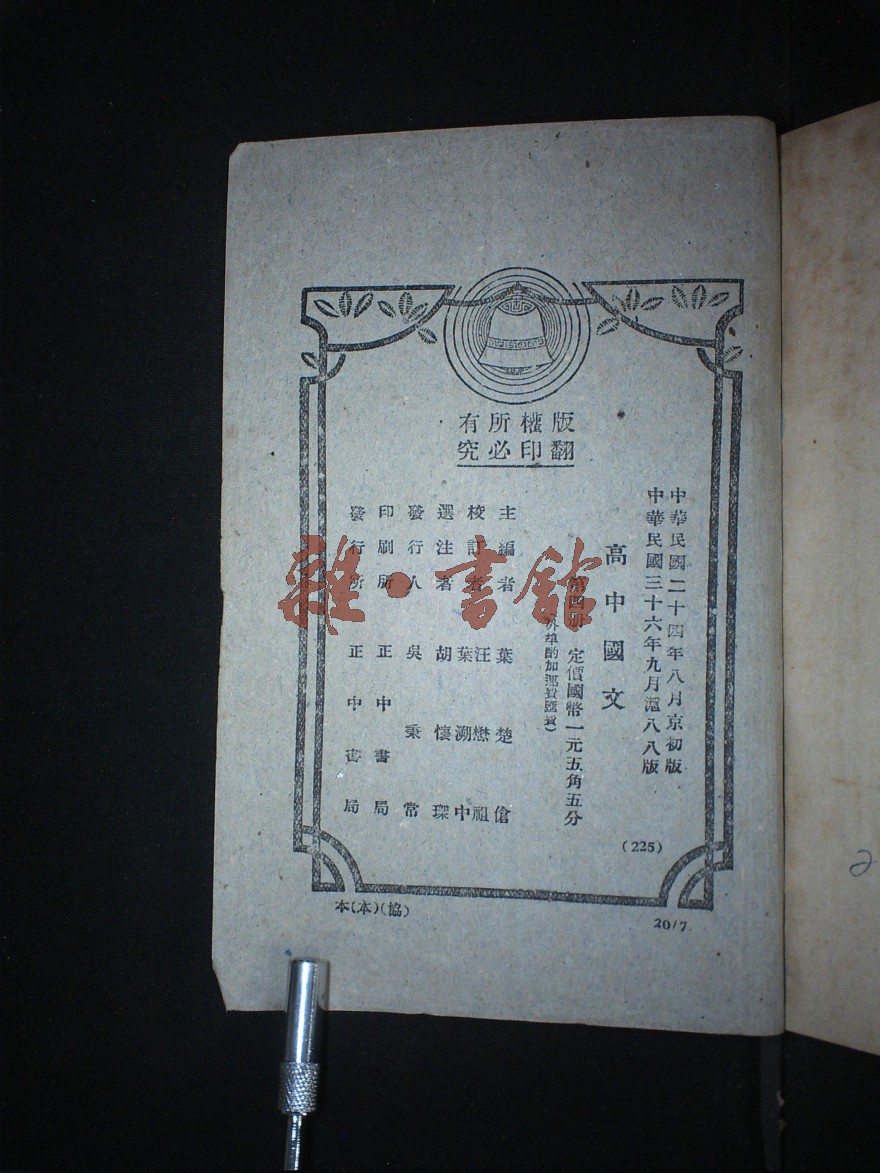 版權所有
翻印必究
中華民國二十四年八月京初版
中華民國三十六年九月滬八八版
高中國文
第四册 定價國幣一元五角五分
(外埠酌加運費匯費)
主編者 葉楚傖
校訂者 汪懋祖 葉溯中
選注者 胡懷琛
發行人 吳秉常
印刷所 正中書局
發行所 正中書局
(225)
本(本)(協)
20/7
雜·書館